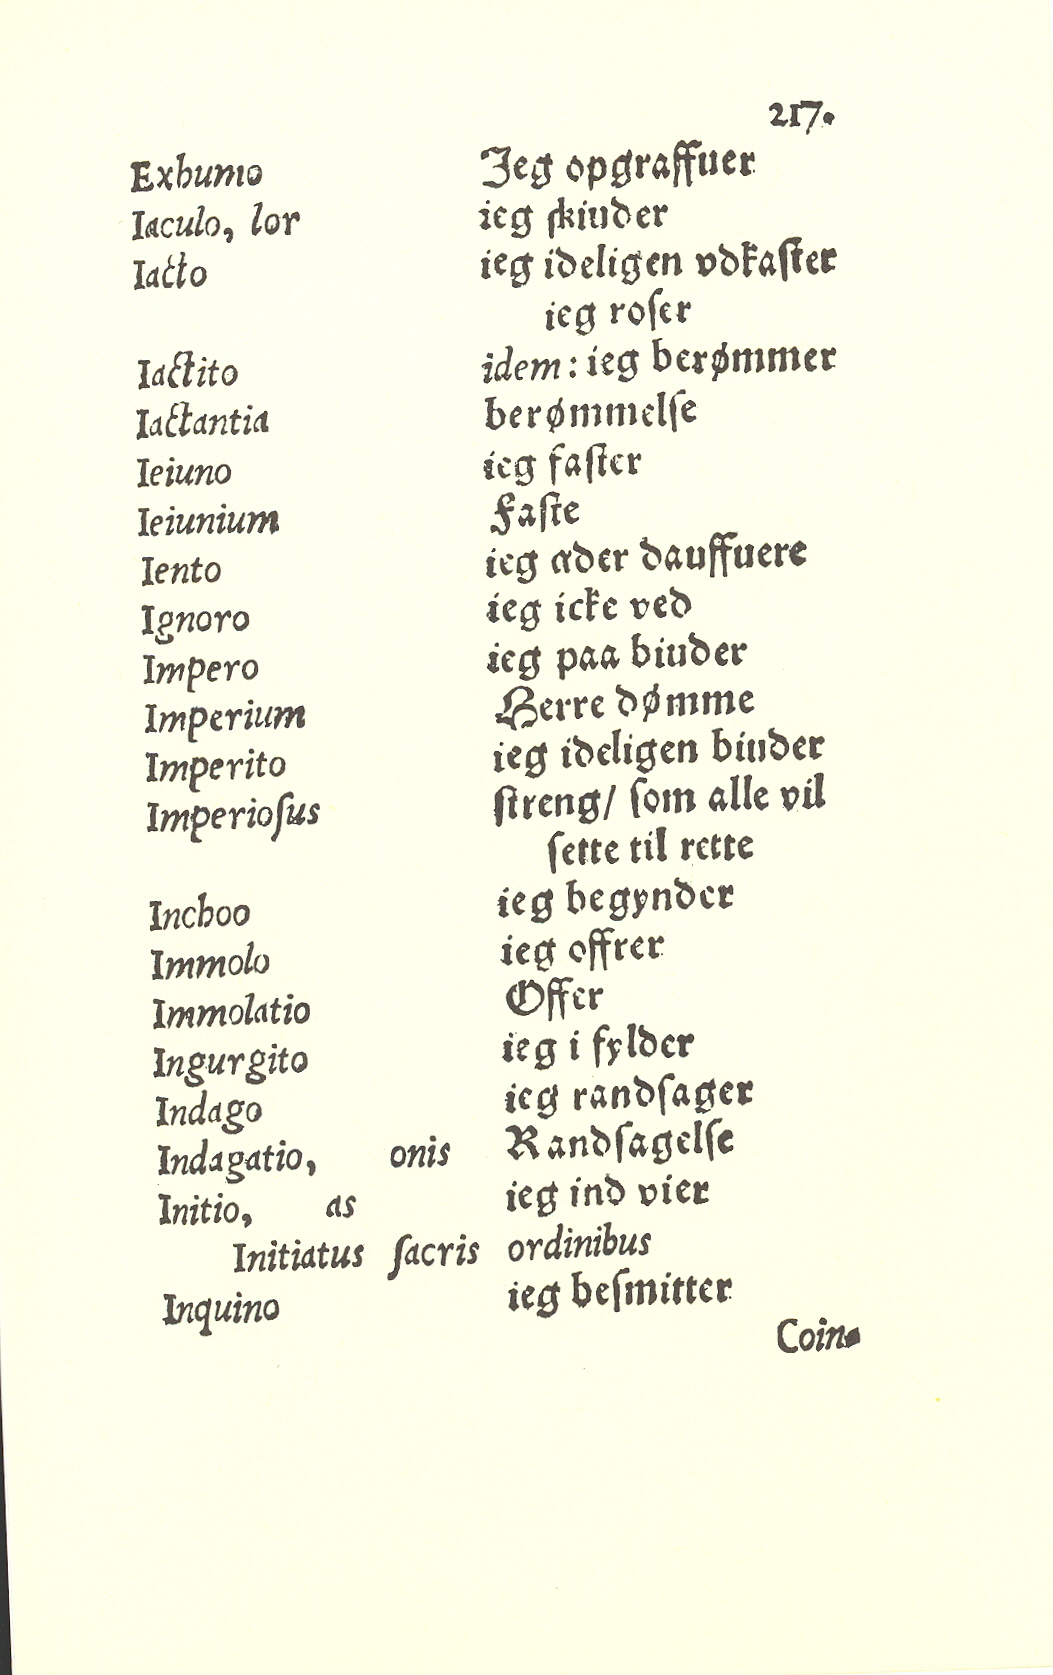 217.
Exhumo Jeg opgraffuer
Iaculo, lor ieg skiuder
Iacto ieg ideligen vdkaster
ieg roser
Iactito idem: ieg berømmer
Iactantia berømmelse
Ieiuno ieg faster
Ieiunium Faste
Iento ieg æder dauffuere
Ignoro ieg icke ved
Impero ieg paa biuder
Imperium Herre dømme
Imperito ieg ideligen biuder
Imperiosus streng/ som alle vil
sette til rette
Inchoo ieg begynder
Immolo ieg offrer
Immolatio Offer
Ingurgito ieg i fylder
Indago ieg randsager
Indagatio, onis Randsagelse
Initio, as ieg ind vier
Initiatus sacris ordinibus
Inquino ieg besmitter
Coin-